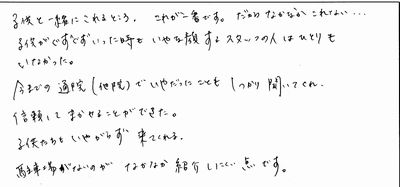 子供と一緒にこれるところ、これが一番です。だからなかなかこれない…
子供がぐずぐずいった時もいやな顔するスタッフの人はひとりも
いなかった。
今までの通院(他院)でいやだったこともしっかり聞いてくれ、
信頼してまかせることができた。
子供たちもいやがらず来てくれる。
駐車場がないのがなかなか紹介しにくい点です。